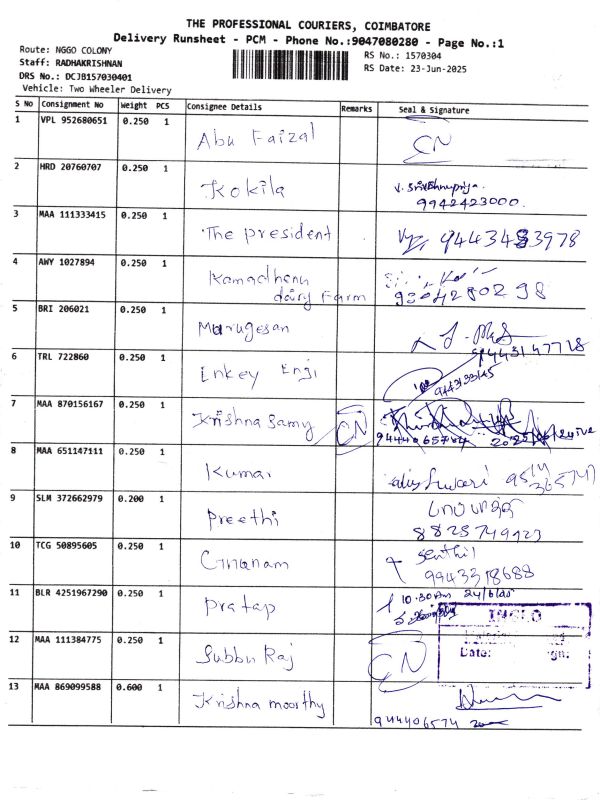 THE PROFESSIONAL COURIERS, COIMBATORE
Delivery Runsheet - PCM - Phone No.:9047080280 - Page No.:1
Route: NGGO COLONY
RS No.: 1570304
Staff: RADHAKRISHNAN
RS Date: 23-Jun-2025
DRS No.: DCJB157030401
Vehicle: Two Wheeler Delivery
S No Consignment No Weight PCS Consignee Details Remarks Seal & Signature
1 VPL 952680651 0.250 1 Abu Faizal CN
2 HRD 20760707 0.250 1 Kokila
9942423000
3 MAA 111333415 0.250 1 The president
4 AWY 1027894 0.250 1 Kamadhenu
dairy Farm
5 BRI 206021 0.250 1 Murugesan
9443147728
6 TRL 722860 0.250 1 Inkey Engi
7 MAA 870156167 0.250 1 Krishna Samy CN
8 MAA 651147111 0.250 1 Kumar
9 SLM 372662979 0.200 1 Preethi
10 TCG 50895605 0.250 1 Gnanam Senthil
9943318688
11 BLR 4251967290 0.250 1 Pratap 10.30Am 24/6/25
12 MAA 111384775 0.250 1 Subbu Raj CN
Date:
13 MAA 869099588 0.600 1 Krishna moorthy
944406574